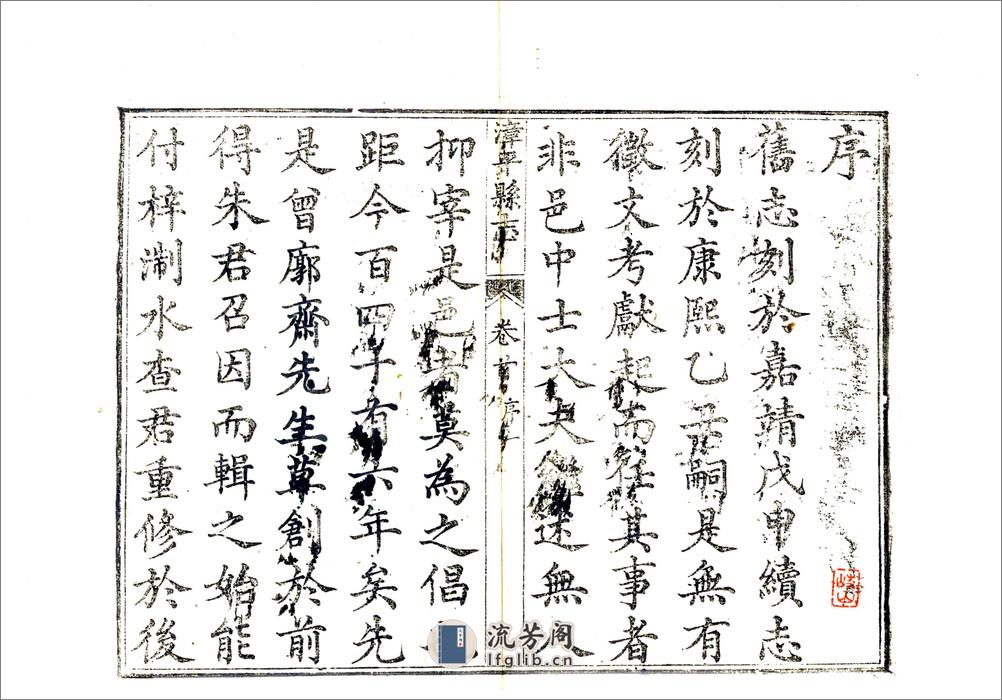 序
舊志刻於嘉靖戊申續志
刻於康熙乙丑嗣是無有
徵文考獻起而任其事者
非邑中士大夫述無人
漳平縣志 卷首 序
抑宰是邑者莫為之倡
距今百四十有六年矣先
是曾廓齋先生草創於前
得朱君召因而輯之始能
付梓淛水查君重修於後
流芳阁
lfglib.cn